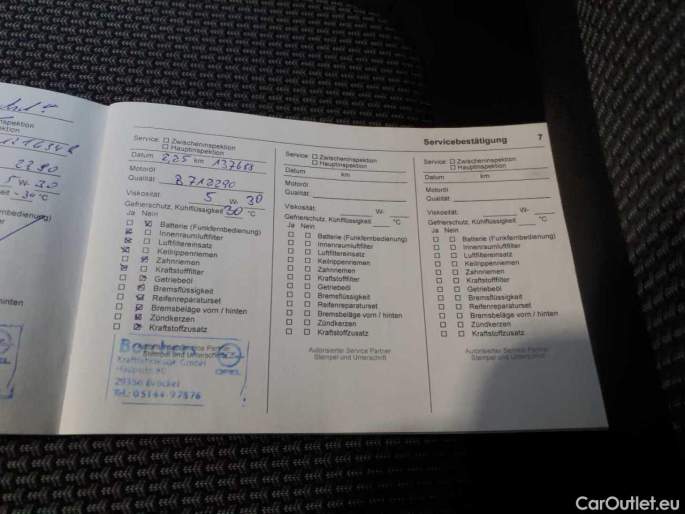 nspektion
ektion
121634 k
2290
5 W- 30
eit -30 °C
nbedienung)
ninten
Servicebestätigung 7
Service: ☐ Zwischeninspektion
☐ Hauptinspektion
Datum 2,25 km 137653
Motoröl
Qualität B712290
Viskosität 5 W- 30
Gefrierschutz, Kühlflüssigkeit 30 °C
Ja Nein
Batterie (Funkfernbedienung)
Innenraumluftfilter
Luftfiltereinsatz
Keilrippenriemen
Zahnriemen
Kraftstofffilter
Getriebeöl
Bremsflüssigkeit
Reifenreparaturset
Bremsbeläge vorn / hinten
Zündkerzen
Kraftstoffzusatz
Service Partner
Stempel und Unterschrift
Kraftfahrzeuge GmbH
29356 Bröckel
Tel.: 05144-97876
OPEL
Service: ☐ Zwischeninspektion
☐ Hauptinspektion
Datum km
Motoröl
Qualität
Viskosität: W-
Gefrierschutz, Kühlflüssigkeit °C
Ja Nein
☐ ☐ Batterie (Funkfernbedienung)
☐ ☐ Innenraumluftfilter
☐ ☐ Luftfiltereinsatz
☐ ☐ Keilrippenriemen
☐ ☐ Zahnriemen
☐ ☐ Kraftstofffilter
☐ ☐ Getriebeöl
☐ ☐ Bremsflüssigkeit
☐ ☐ Reifenreparaturset
☐ ☐ Bremsbeläge vorn / hinten
☐ ☐ Zündkerzen
☐ ☐ Kraftstoffzusatz
Autorisierter Service Partner
Stempel und Unterschrift
Service: ☐ Zwischeninspektion
☐ Hauptinspektion
Datum km
Motoröl
Qualität
Viskosität: W-
Gefrierschutz, Kühlflüssigkeit °C
Ja Nein
☐ ☐ Batterie (Funkfernbedienung)
☐ ☐ Innenraumluftfilter
☐ ☐ Luftfiltereinsatz
☐ ☐ Keilrippenriemen
☐ ☐ Zahnriemen
☐ ☐ Kraftstofffilter
☐ ☐ Getriebeöl
☐ ☐ Bremsflüssigkeit
☐ ☐ Reifenreparaturset
☐ ☐ Bremsbeläge vorn / hinten
☐ ☐ Zündkerzen
☐ ☐ Kraftstoffzusatz
Autorisierter Service Partner
Stempel und Unterschrift
CarOutlet.eu